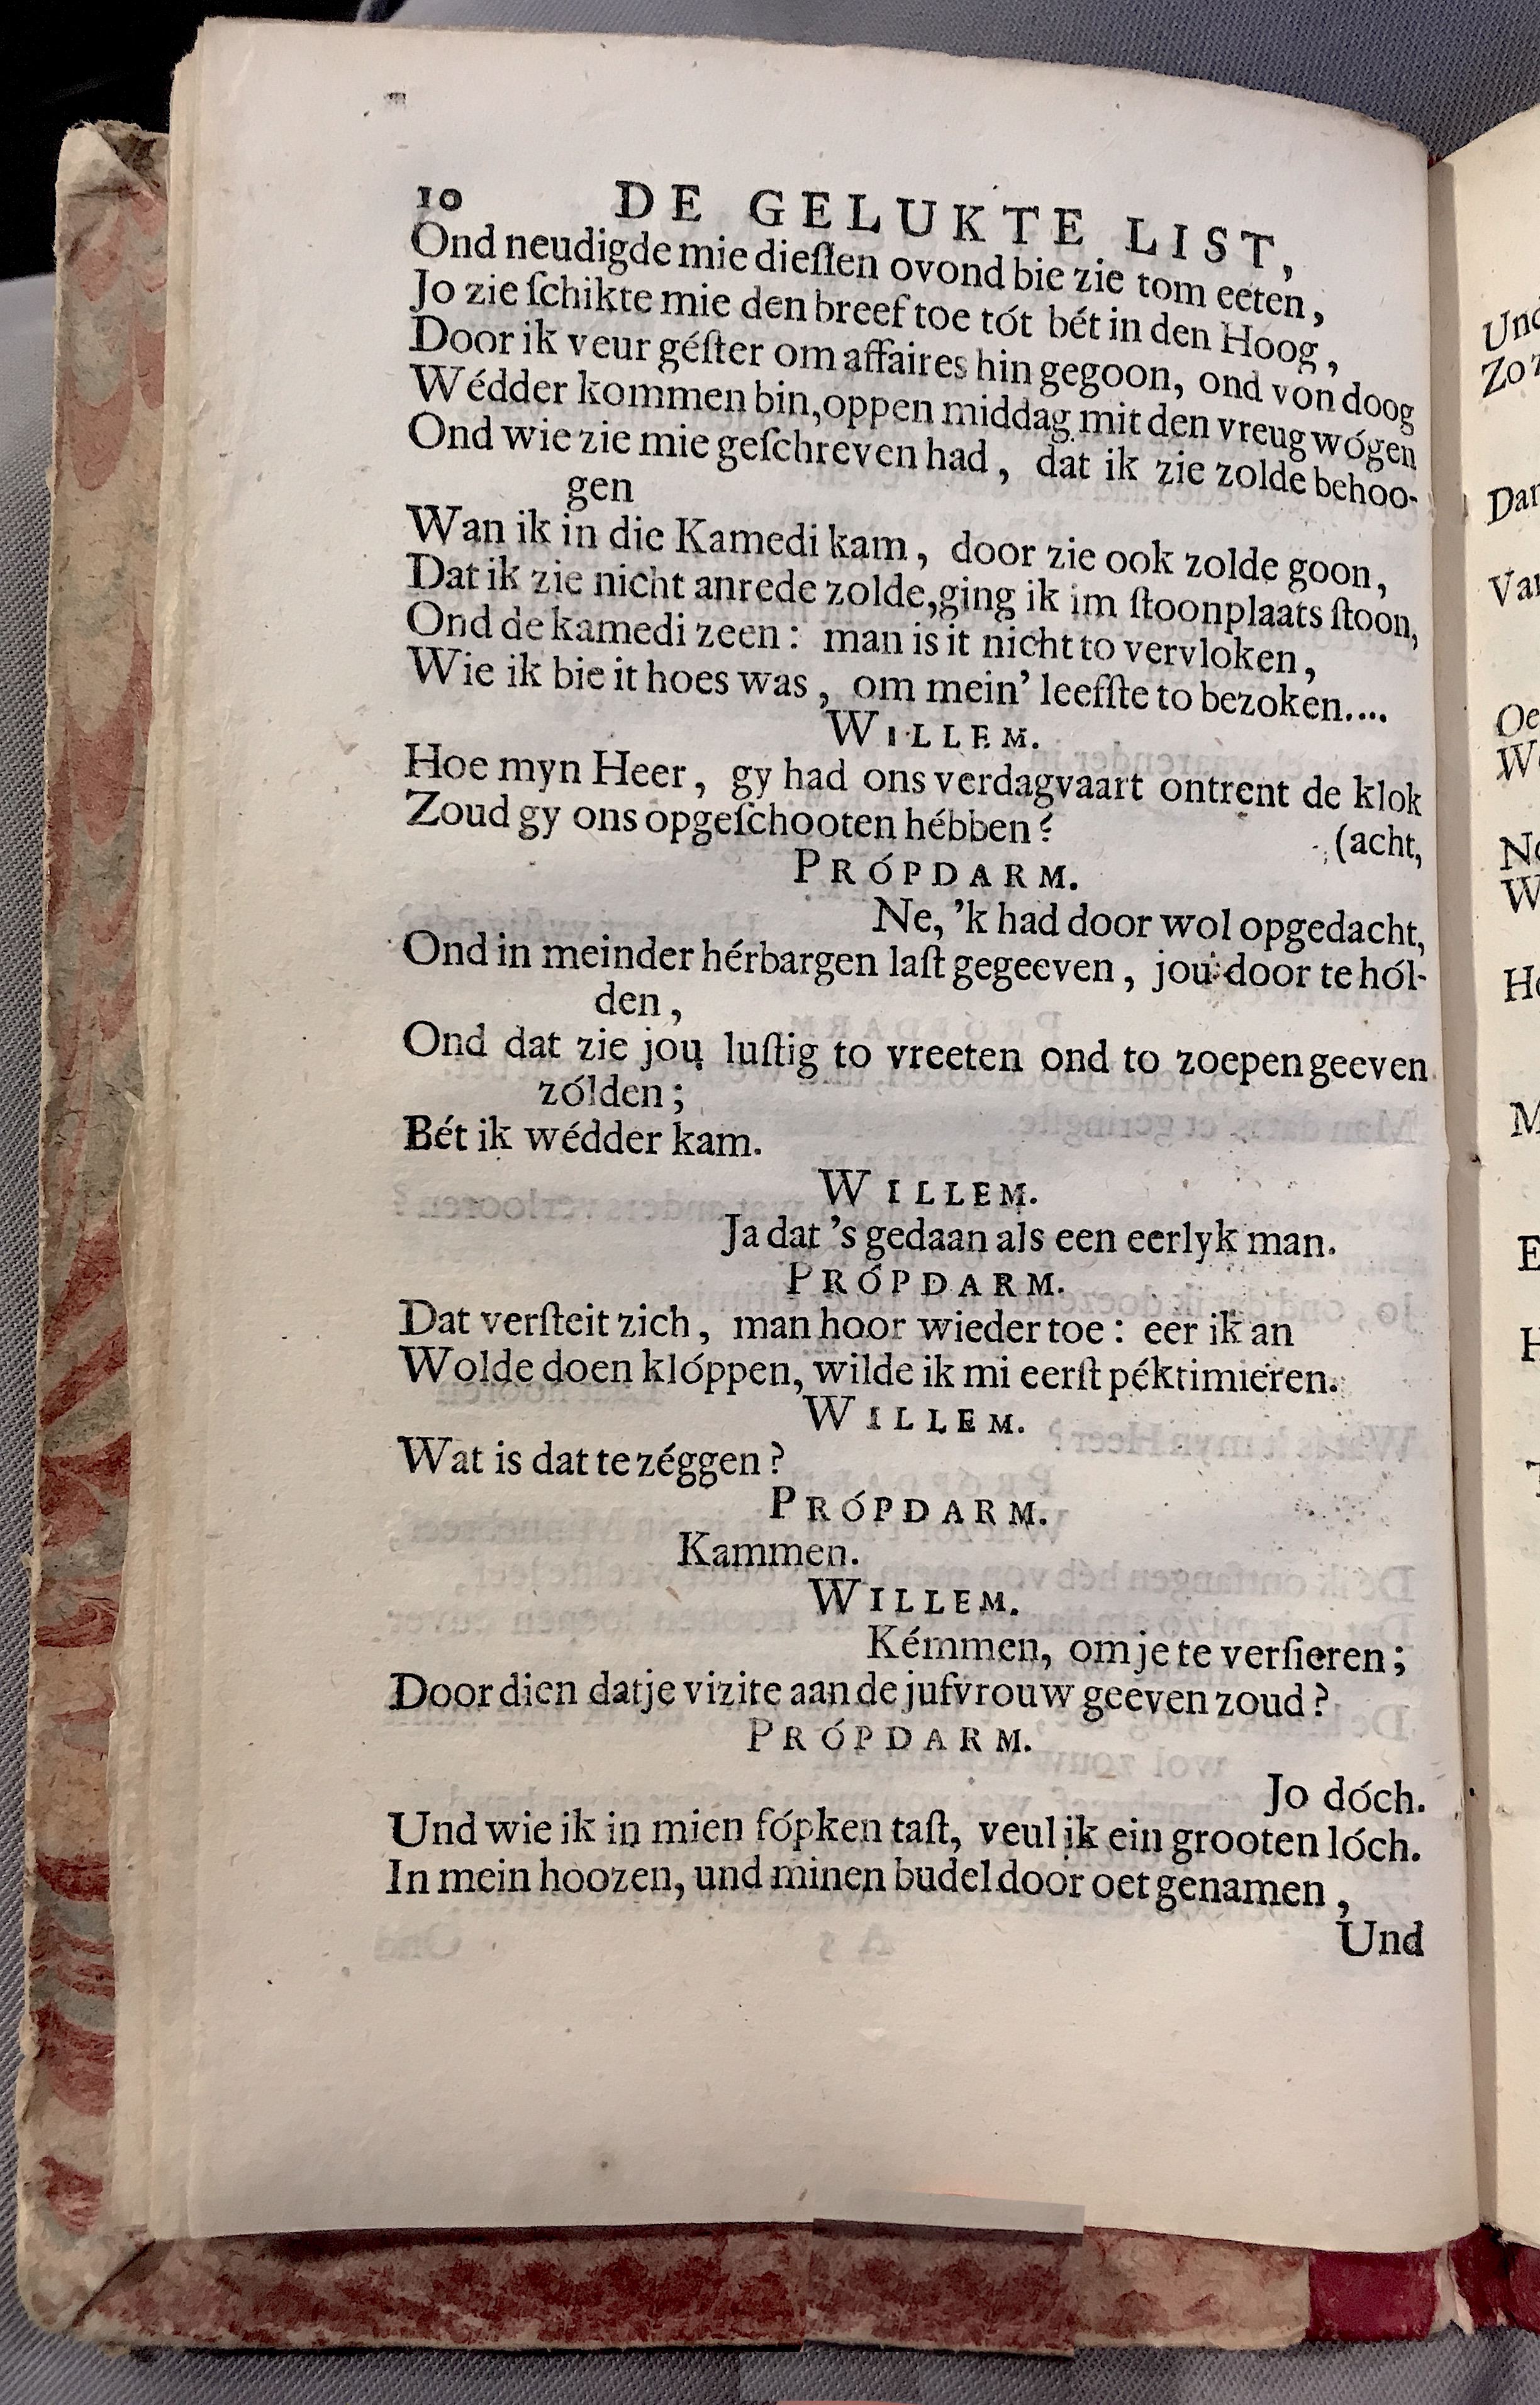 10 DE GELUKTE LIST,
Ond neudigde mie dieſſen ovond bie zie tom eeten,
Jo zie ſchikte mie den breef toe tót bét in den Hoog,
Door ik veur géſter om affaires hin gegoon, ond von doog
Wédder kommen bin, oppen middag mit den vreug wógen
Ond wie zie mie geſchreven had, dat ik zie zolde behoo-
gen
Wan ik in die Kamedi kam, door zie ook zolde goon,
Dat ik zie nicht anrede zolde, ging ik im ſtoonplaats ſtoon,
Ond de kamedi zeen: man is it nicht to vervloken,
Wie ik bie it hoes was, om mein' leefſte to bezoken....
WILLEM.
Hoe myn Heer, gy had ons verdagvaart ontrent de klok
Zoud gy ons opgeſchooten hébben? (acht,
PRÓPDARM.
Ne, 'k had door wol opgedacht,
Ond in meinder hérbargen laſt gegeeven, jou door te hól-
den,
Ond dat zie jou luſtig to vreeten ond to zoepen geeven
zólden;
Bét ik wédder kam.
WILLEM.
Ja dat 's gedaan als een eerlyk man.
PRÓPDARM.
Dat verſteit zich, man hoor wieder toe: eer ik an
Wolde doen klóppen, wilde ik mi eerſt péktimieren.
WILLEM.
Wat is dat te zéggen?
PRÓPDARM.
Kammen.
WILLEM.
Kémmen, om je te verſieren;
Door dien datje vizite aan de jufvrouw geeven zoud?
PRÓPDARM.
Jo dóch.
Und wie ik in mien fópken taſt, veul ik ein grooten lóch.
In mein hoozen, und minen budel door oet genamen,
Und